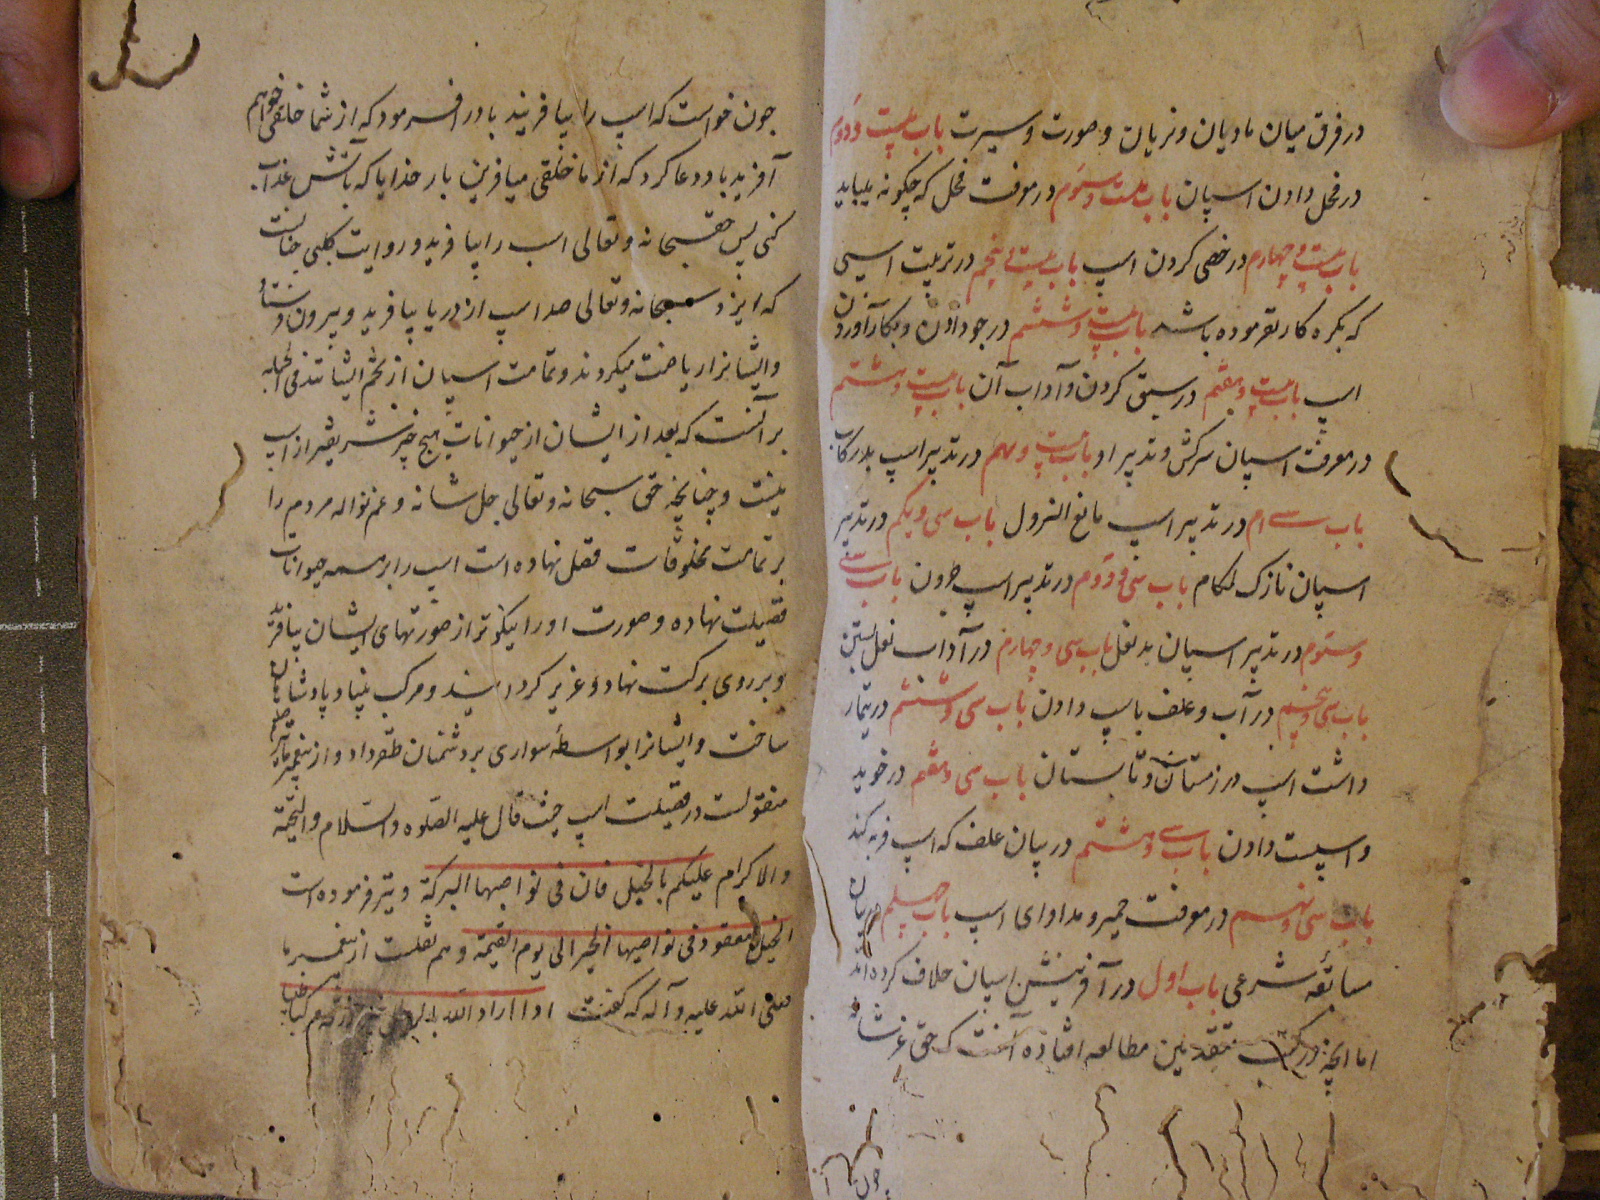 در فرق میان مادیان و نریان و صورت و سیرت باب بیست و دوم
در فحل دادن اسپان باب بیست و سوم در معرفت فحل که چگونه بیاید
باب بیست و چهارم در خصی کردن اسپ باب بیست و پنجم در تربیت اسپی
که بکره کار نفرموده باشد باب بیست و ششم در جو دادن و بکار آوردن
اسپ باب بیست و هفتم در سبق کردن و آداب آن باب بیست و هشتم
در معرفت اسپان سرکش و تدبیر او باب بیست و نهم در تدبیر اسپ بدرکاب
باب سی ام در تدبیر اسپ مانع النزول باب سی و یکم در تدبیر
اسپان نازک لکام باب سی و دوم در تدبیر اسپ حرون باب سی
و سوم در تدبیر اسپان بدنعل باب سی و چهارم در آداب نعل بستن
باب سی و پنجم در آب و علف باسپ دادن باب سی و ششم در تیمار
داشت اسپ در زمستان و تابستان باب سی و هفتم در خوید
و اسپست دادن باب سی و هشتم در بیان علف که اسپ فربه کند
باب سی و نهم در معرفت حمیر و مداوای اسپ باب چهلم در بیان
مسابقه شرعی باب اول در آفرینش اسپان خلاف کرده اند
اما آنچه در کتب متقدمین مطالعه افتاده آنست که حق عز شانه
چون
چون خواست که اسپ را بیافریند باد را فرمود که از شما خلقی خواهم
آفرید باد دعا کرد که از ما خلقی میافرین بار خدایا که بآتش عذاب
کنی پس حق سبحانه و تعالی اسپ را بیافرید و روایت کلبی چنانست
که ایزد سبحانه و تعالی صد اسپ از دریا بیافرید و بیرون
و ایشانرا ریاضت میکردند و تمامت اسپان از تخم ایشانند فی الجمله
بر آنست که بعد از ایشان از حیوانات هیچ چیز شریفتر از اسپ
نیست و چنانچه حق سبحانه و تعالی جل شانه و عم نواله مردم را
بر تمامت مخلوقات فضل نهاده است اسپ را بر همه حیوانات
فضیلت نهاده و صورت او را نیکوتر از صورتهای ایشان بیافرید
و بر روی برکت نهاد و عزیز کردانید و مرکب پادشاهان
ساخت و ایشانرا بواسطهٔ سواری بر دشمنان ظفر داد و از پیغمبر
منقولست در فضیلت اسپ حیث قال علیه الصلوه والسلام والتحیة
والاکرام علیکم بالخیل فان فی نواصیها البرکة و نیز فرموده است
الخیل معقود فی نواصیها الخیر الی یوم القیمة و هم نقلست از پیغمبر ما
صلی الله علیه و آله که گفت اذا اراد الله